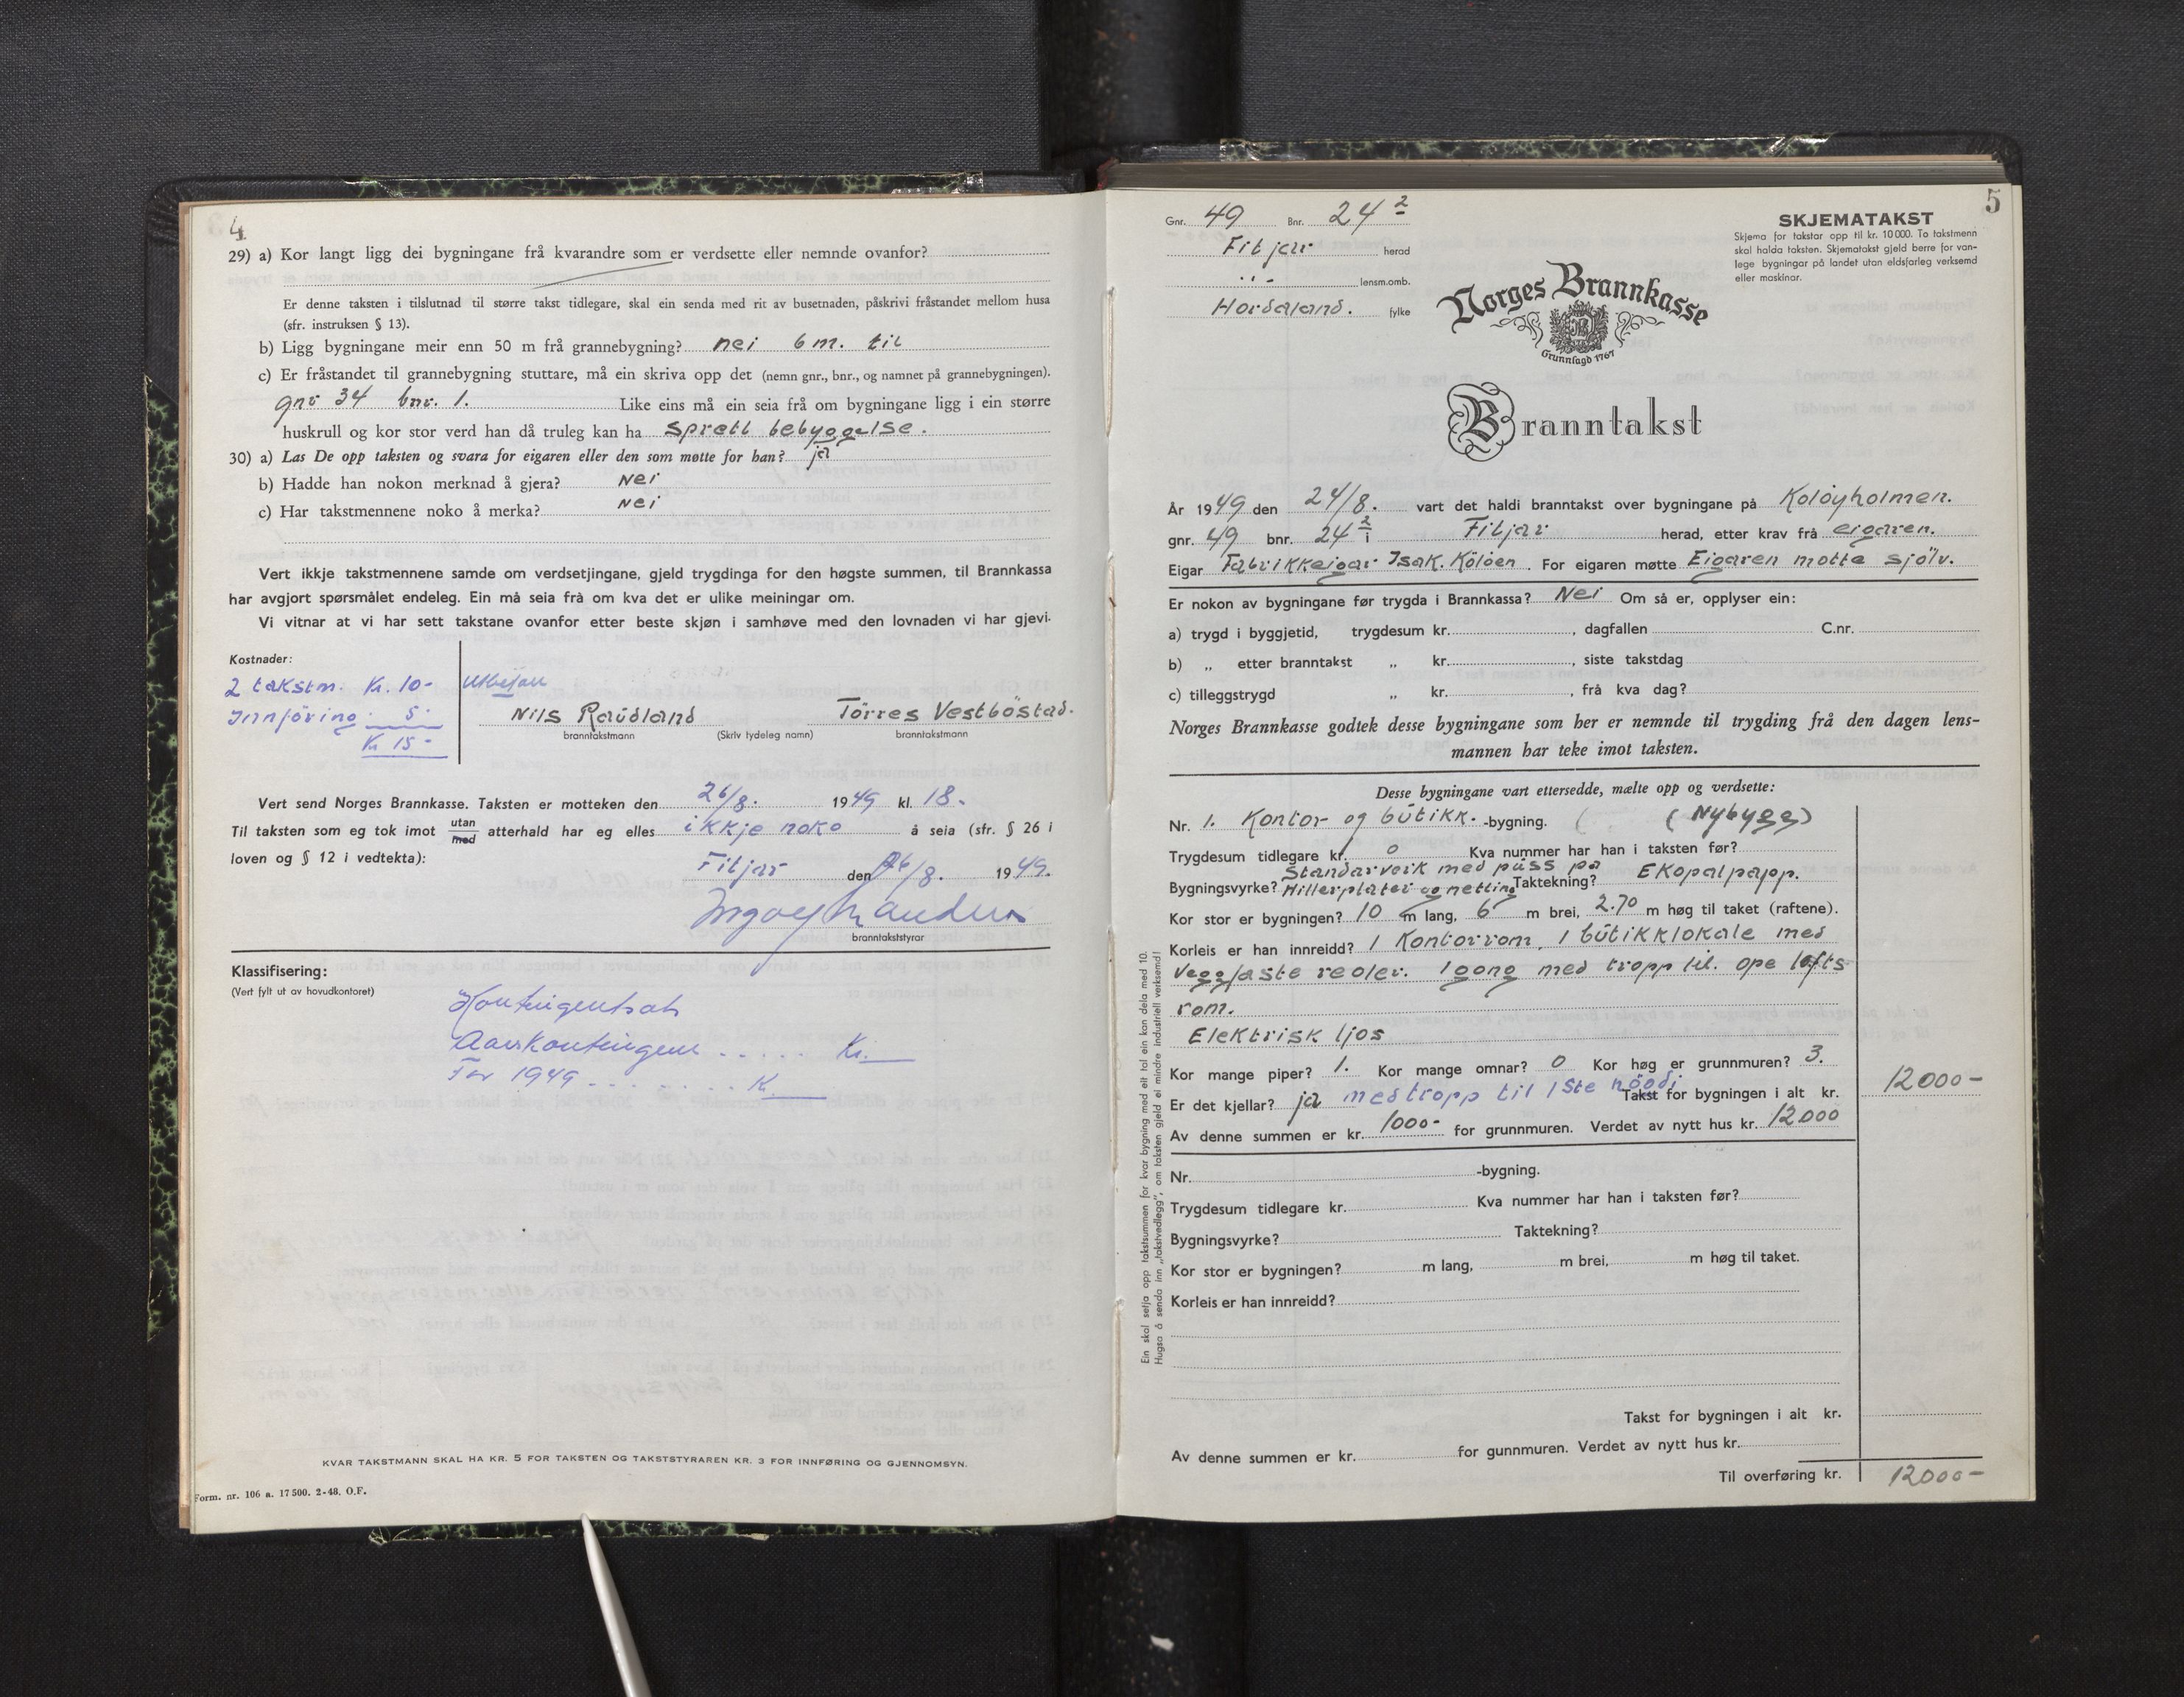 4
29) a) Kor langt ligg dei bygningane frå kvarandre som er verdsette eller nemnde ovanfor?
Er denne taksten i tilslutnad til større takst tidlegare, skal ein senda med rit av busetnaden, påskrivi fråstandet mellom husa
(sfr. instruksen § 13).
b) Ligg bygningane meir enn 50 m frå grannebygning? nei 6 m. til
c) Er fråstandet til grannebygning stuttare, må ein skriva opp det (nemn gnr., bnr., og namnet på grannebygningen).
gnr 34 bnr. 1. Like eins må ein seia frå om bygningane ligg i ein større
huskrull og kor stor verd han då truleg kan ha sprett bebyggelse.
30) a) Las De opp taksten og svara for eigaren eller den som møtte for han? ja
b) Hadde han nokon merknad å gjera? Nei
c) Har takstmennene noko å merka? Nei
Vert ikkje takstmennene samde om verdsetjingane, gjeld trygdinga for den høgste summen, til Brannkassa
har avgjort spørsmålet endeleg. Ein må seia frå om kva det er ulike meiningar om.
Vi vitnar at vi har sett takstane ovanfor etter beste skjøn i samhøve med den lovnaden vi har gjevi.
Kostnader:
2 takstm. Kr. 10-
Innföring. 5.
Kr 15-
Nils Raudland Törres Vestböstad.
branntakstmann (Skriv tydeleg namn) branntakstmann
Vert send Norges Brannkasse. Taksten er motteken den 26/8. 1949 kl. 18.
Til taksten som eg tok imot utan/med atterhald har eg elles ikkje noko å seia (sfr. § 26 i
loven og § 12 i vedtekta):
Fitjar den 26/8. 1949.
branntakststyrar
Klassifisering:
(Vert fylt ut av hovudkontoret)
Kontingentsats
Aarskontingent ..... Kr.
For 1949 ........ K.
KVAR TAKSTMANN SKAL HA KR. 5 FOR TAKSTEN OG TAKSTSTYRAREN KR. 3 FOR INNFØRING OG GJENNOMSYN.
Form. nr. 106 a. 17 500. 2-48. O.F.
5
Gnr. 49 Bnr. 24 2
Fitjar herad
,, - lensm.omb.
Hordaland. fylke
SKJEMATAKST
Skjema for takstar opp til kr. 10 000. To takstmenn
skal halda taksten. Skjematakst gjeld berre for van-
lege bygningar på landet utan eldsfarleg verksemd
eller maskinar.
Norges Brannkasse
Grunnlagd 1767
Branntakst
År 1949 den 24/8. vart det haldi branntakst over bygningane på Kolöyholmen.
gnr. 49 bnr. 24 2 i Fitjar herad, etter krav frå eigaren.
Eigar Fabrikkeigar Isak. Kölöen. For eigaren møtte Eigaren møtte sjölv.
Er nokon av bygningane før trygda i Brannkassa? Nei Om så er, opplyser ein:
a) trygd i byggjetid, trygdesum kr. , dagfallen C.nr.
b) „ etter branntakst „ kr. , siste takstdag
c) tilleggstrygd „ kr. , frå kva dag?
Norges Brannkasse godtek desse bygningane som her er nemnde til trygding frå den dagen lens-
mannen har teke imot taksten.
Desse bygningane vart ettersedde, mælte opp og verdsette:
Nr. 1. Kontor og butikk. -bygning. (Nybygg)
Trygdesum tidlegare kr. 0 Kva nummer har han i taksten før?
Standarverk med puss på
Bygningsvyrke? Hillerplater og netting Taktekning? Ekopalpapp.
Kor stor er bygningen? 10 m lang, 6 m brei, 2.70 m høg til taket (raftene).
Korleis er han innreidd? 1 Kontorrom, 1 butikklokale med
Veggfaste reoler. 1 gong med tropp til. ope lofts
rom.
Elektrisk ljos
Kor mange piper? 1. Kor mange omnar? 0 Kor høg er grunnmuren? 3.
Er det kjellar? ja med tropp til 1ste høgdi Takst for bygningen i alt kr. 12000-
Av denne summen er kr. 1000- for grunnmuren. Verdet av nytt hus kr. 12000
Nr. -bygning.
Trygdesum tidlegare kr. Kva nummer har han i taksten før?
Bygningsvyrke? Taktekning?
Kor stor er bygningen? m lang, m brei, m høg til taket.
Korleis er han innreidd?
Takst for bygningen i alt kr.
Av denne summen er kr. for gunnmuren. Verdet av nytt hus kr.
Til overføring kr. 12000-
Ein skal setja opp takstsummen for kvar bygning med eit tal ein kan dela med 10.
Hugsa å senda inn „takstvedlegg", om taksten gjeld ei mindre industriell verksemd!